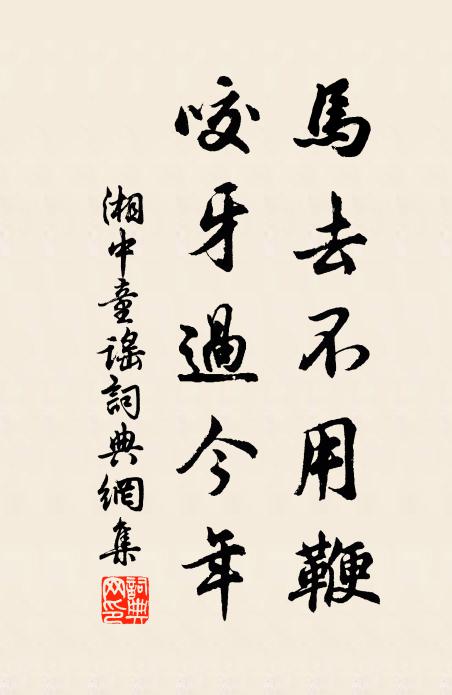 馬去不用鞭
咬牙過今年
湘中童謠詞典網集
詞典網印